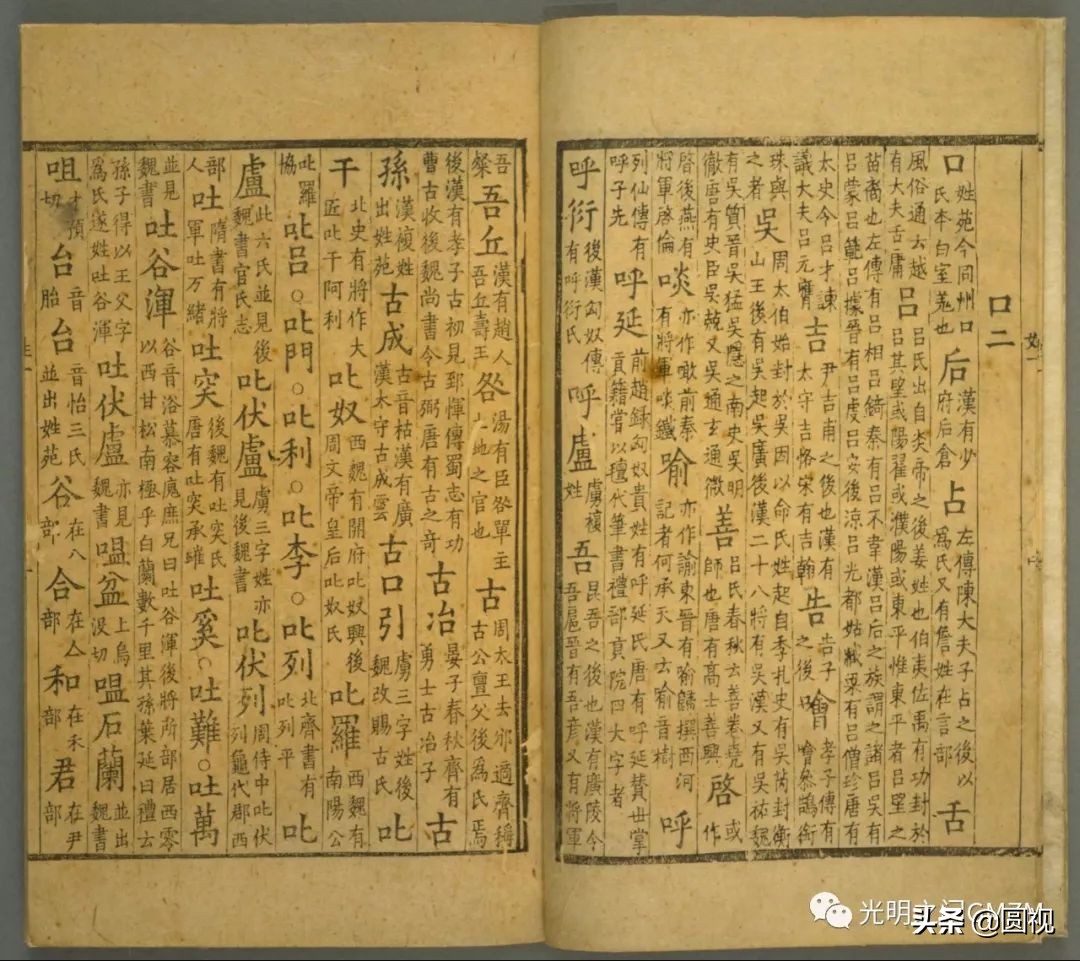 口二
口姓苑今同州口氏本白室蒐也后漢有少府后倉占左傳陳大夫子占之後以為氏又有詹姓在言部舌
風俗通云越有大夫舌庸呂呂氏出自炎帝之後姜姓也伯夷佐禹有功封於呂其望或陽翟或濮陽或東平惟東平者呂望之
苗裔也左傳有呂相呂錡秦有呂不韋漢呂后之族謂之諸呂吳有呂蒙呂範呂據晉有呂虔呂安後涼呂光都姑臧梁有呂僧珍唐有
太史令呂才諫議大夫呂元膺吉尹吉甫之後也漢有太守吉恪宋有吉翰告告子之後噲孝子傳有噲參鵠銜
珠與之者吳周太伯始封於吳因以命氏姓起自季札史有吳芮封衡山王後有吳起吳廣後漢二十八將有吳漢又有吳祐魏
有吳質晉吳猛吳隱之南史吳明徹唐有史臣吳兢又吳通玄通微善呂氏春秋云善卷堯師也唐有高士善興啓或作
啓後燕有將軍啓倫啖亦作噉前秦有將軍啖鐵喻亦作諭東晉有喻歸撰西河記者何承天又云喻音樹呼
列仙傳有呼子先呼延前趙錄匈奴貴姓有呼延氏唐有呼延贊世掌貢籍嘗以擅代筆書禮部貢院四大字者
呼衍後漢匈奴傳有呼衍氏呼盧虜複姓吾昆吾之後也漢有廣陵令吾扈晉有吾彥又有將軍
吾粲吾丘漢有趙人吾丘壽王咎湯有臣咎單主土地之官也古周太王去邠適齊稱古公亶父後為氏焉
後漢有孝子古初見郅惲傳蜀志有功曹古收後魏尚書令古弼唐有古之奇古冶晏子春秋齊有勇士古冶子古
孫漢複姓出姓苑古成古音枯漢有廣漢太守古成雲古口引虜三字姓後魏改賜古氏叱
干北史有將作大匠叱干阿利叱奴西魏有開府叱奴興後周文帝皇后叱奴氏叱羅西魏有南陽公
叱羅協叱呂○叱門○叱利○叱李○叱列北齊書有叱列平叱
盧此六氏並見後魏書官氏志叱伏盧虜三字姓亦見後魏書叱伏列周侍中叱伏列龜代郡西
部人吐隋書有將軍吐万緒吐突後魏有吐突氏唐有吐突承璀吐奚○吐難○吐萬
並見魏書吐谷渾谷音浴慕容廆庶兄曰吐谷渾後將所部居西零以西甘松南極乎白蘭數千里其孫葉延曰禮云
孫子得以王父字為氏遂姓吐谷渾吐伏盧亦見魏書嗢盆上烏沒切嗢石蘭並出魏書
咀才預切台音胎台音怡三氏並出姓苑谷在八部合在人部和在禾部君在尹部
光明之门GMZM
头条 @圆视